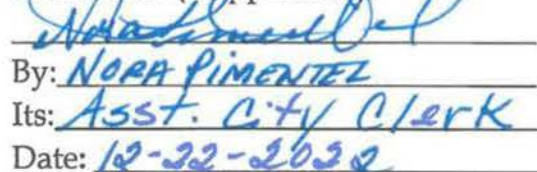 By: NORA PIMENTEL
Its: Asst. City Clerk
Date: 12-22-2022